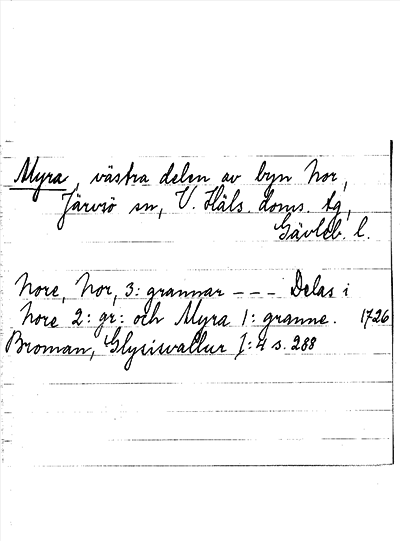 Myra, västra delen av byn Nor,
Järvsö sn, V. Häls. doms. tg,
Gävleb. l.
Nore, Nor, 3: grannar --- Delas i
Nore 2: gr: och Myra 1: granne. 1726
Broman, Glysisvallur I: 4 s. 288